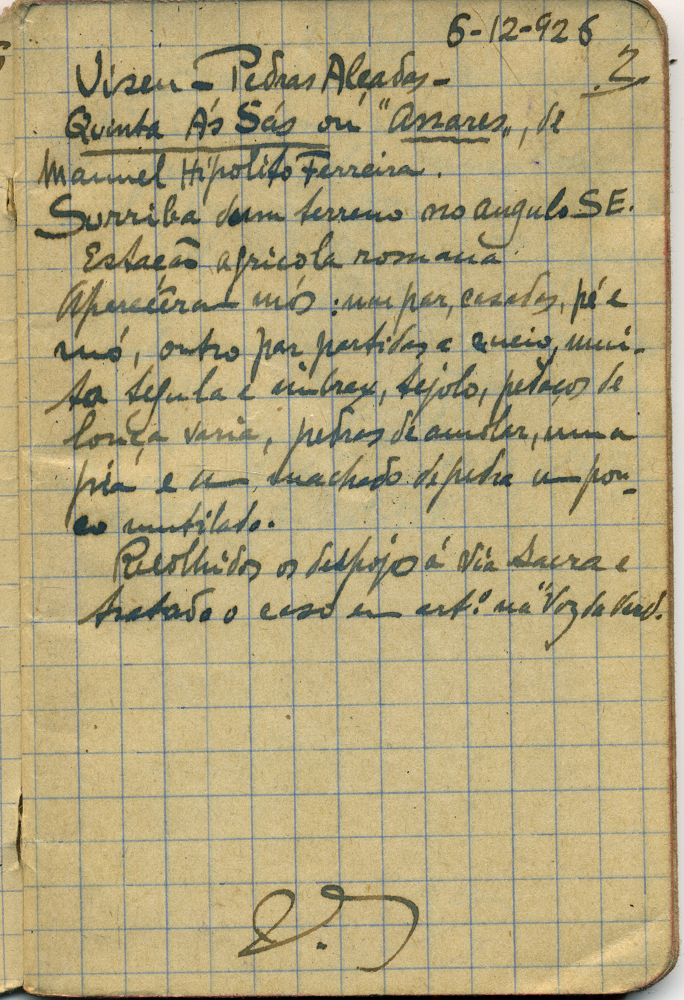 6-12-926
2
Viseu - Pedras Alçadas -
Quinta Ás Sás ou "Assares", de
Manuel Hipolito Ferreira.
Surriba dum terreno no angulo SE.
Estação agricola romana
Apareceram mós: um par, casadas, pé e
mó, outro par partidas e meio, mui-
ta tegula e imbrex, tejolo, pedaços de
louça varia, pedras de amolar, uma
pia e um machado de pedra um pou-
co mutilado.
Recolhidos os despojos á Via Sacra e
tratado o caso em art.º na "Voz da Verd.